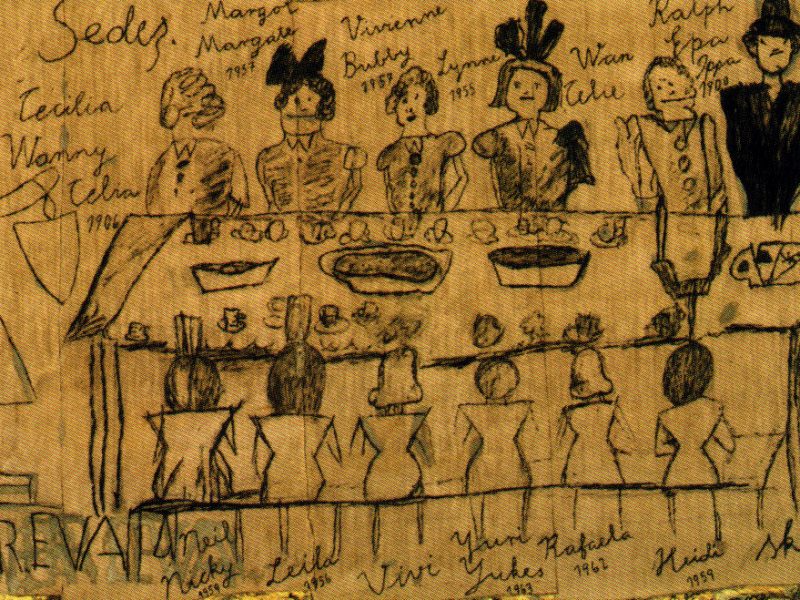 Sedez.
Margot
Margate
1957
Vivienne
Bubby
1959
Lynne
1955
Wan
Celie
Ralph
Epa
Jppa
1900
Cecilia
Wanny
Celia
1906
REVAP
Neil
Nicky
1959
Leila
1956
Vivi
Yuri
Yukes
1963
Rafaela
1962
Heidi
1959
Sk